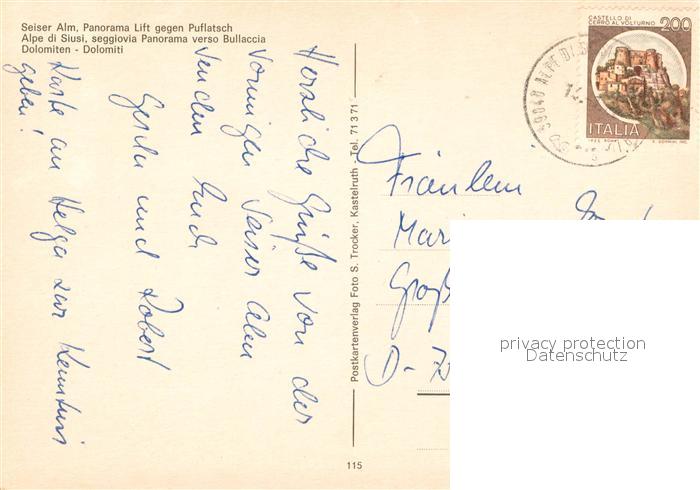 Seiser Alm, Panorama Lift gegen Puflatsch
Alpe di Siusi, seggiovia Panorama verso Bullaccia
Dolomiten - Dolomiti
Herzliche Grüße von der
sonnigen Seiser Alm
senden Euch
Gerda und Robert
Karte an Helga zur Kenntnis
geben!
Postkartenverlag Foto S. Trocker, Kastelruth - Tel. 71371
115
CASTELLO DI
CERRO AL VOLTURNO
200
ITALIA
39040 ALPE DI
Fräulein
Mari
Groß
D-
privacy protection
Datenschutz